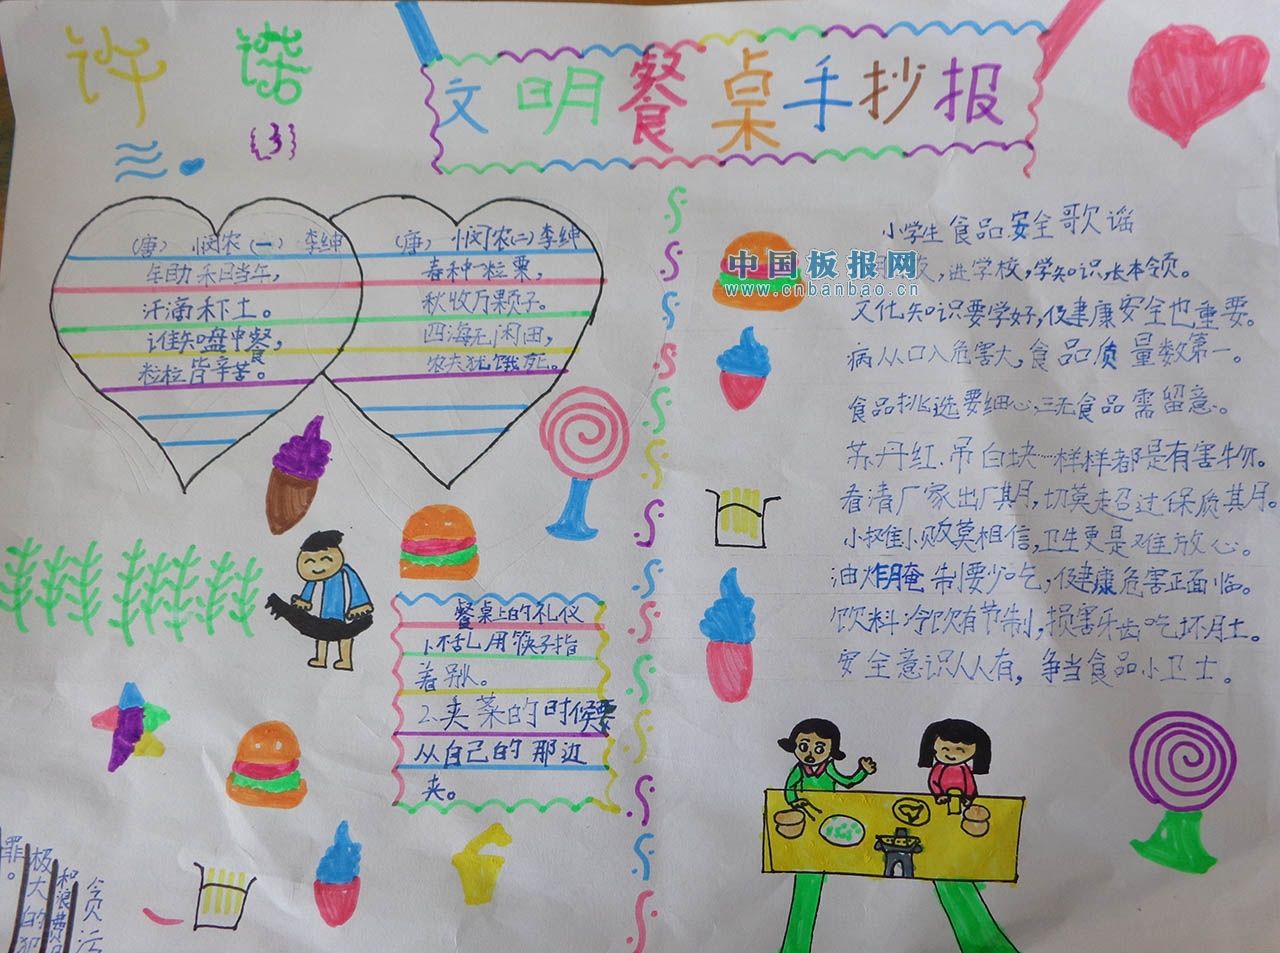 许 诺
(3)
文明餐桌手抄报
(唐) 悯农(一) 李绅
锄禾日当午,
汗滴禾下土。
谁知盘中餐,
粒粒皆辛苦。
(唐) 悯农(二) 李绅
春种一粒粟,
秋收万颗子。
四海无闲田,
农夫犹饿死。
餐桌上的礼仪
1.不乱用筷子指
着别人。
2.夹菜的时候要
从自己的那边
夹。
贪污
和浪费
极大的犯
罪。
小学生食品安全歌谣
中国板报网
www.cnbanbao.cn
进学校,学知识,长本领。
文化知识要学好,健康安全也重要。
病从口入危害大,食品质量数第一。
食品挑选要细心,三无食品需留意。
苏丹红、吊白块…样样都是有害物。
看清厂家出厂期,切莫超过保质期。
小摊小贩莫相信,卫生更是难放心。
油炸腌制要少吃,健康危害正面临。
饮料冷饮有节制,损害牙齿吃坏肚。
安全意识人人有,争当食品小卫士。